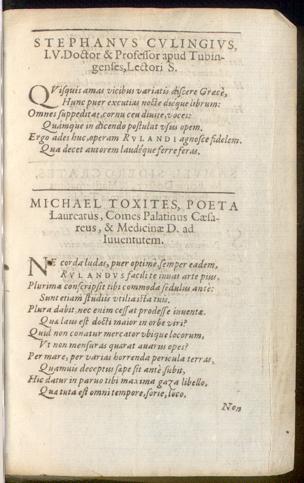 STEPHANVS CVLINGIVS,
I.V. Doctor & Professor apud Tubin-
genses, Lectori S.
QVisquis amas vicibus variatis discere Græcè,
Hunc puer excutias nocte dieque librum:
Omnes suppeditat, cornu ceu diuite, voces:
Quamque in dicendo postulat vsus opem.
Ergo ades huc, operam RVLANDI agnosce fidelem.
Qua decet autorem laudéque ferre feras.
MICHAEL TOXITES, POETA
Laureatus, Comes Palatinus Cæsa-
reus, & Medicinæ D. ad
Iuuentutem.
NE corda ludas, puer optime, semper eadem,
RVLANDVS facilè te iuuat arte pius.
Plurima conscripsit tibi commoda sedulus antè:
Sunt etiam studiis vtilia ista tuis.
Plura dabit, nec enim cessat prodesse iuuentæ.
Qua laus est docti maior in orbe viri?
Quid non conatur mercator vbique locorum,
Vt non mensuras quærat auarus opes?
Per mare, per varias horrenda pericula terras,
Quamuis deceptus sæpe sit antè, subit,
Hic datur in paruo tibi maxima gaza libello,
Quæ tuta est omni tempore, sorte, loco.
Non